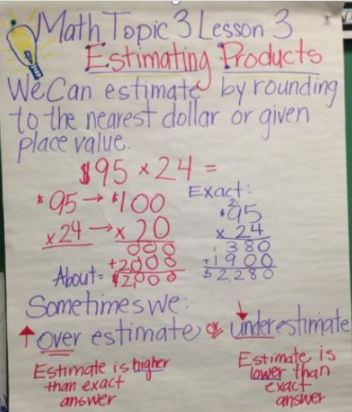 Math Topic 3 Lesson 3
Estimating Products
We Can estimate by rounding
to the nearest dollar or given
place value.
$95 × 24 =
$95 → $100
x 24 → x 20
000
+2000
About = $2,000
Exact:
2
$95
x 24
380
+1900
$2,280
Sometimes we:
↑ Over estimate or ↓ underestimate
Estimate is higher
than exact
answer
Estimate is
lower than
exact
answer